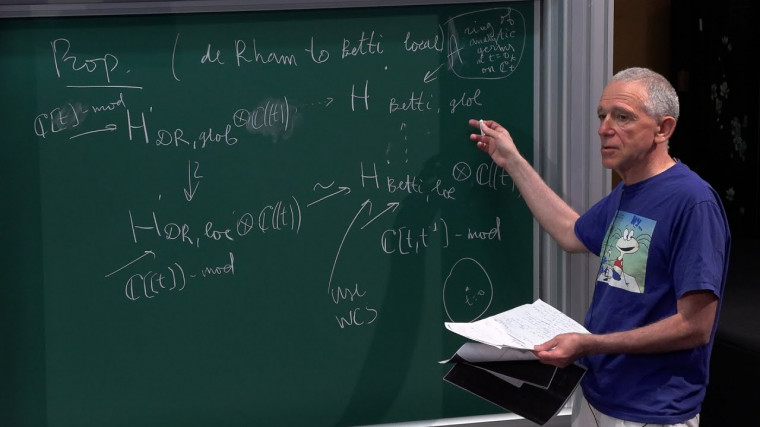 Prop. (de Rham to Betti local)
A
ring of
analytic
germs
at t=0
on ℂt
ℂ[t]-mod
H˙DR,glob ⊗ℂ((t)) ····> H˙Betti, glob
≀
H˙DR,loc ⊗ℂ((t)) ~→ H˙Betti,loc ⊗ℂ((t))
ℂ((t))-mod
ℂ[t,t⁻¹]-mod
use
WCS
t=0